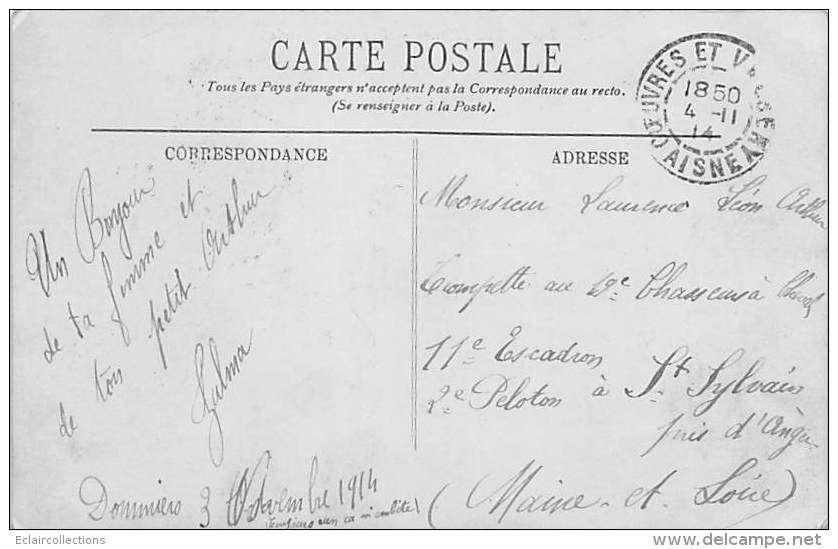 CARTE POSTALE
Tous les Pays étrangers n'acceptent pas la Correspondance au recto.
(Se renseigner à la Poste).
CORRESPONDANCE
Un Bonjour
de ta femme et
de ton petit Arthur
Zulma
Dommiers 3 Novembre 1914
ADRESSE
ŒUVRES ET
AISNE
18 50
4 -11
14
Monsieur Laurence Léon Arthur
Trompette au Chasseurs à Cheval
11e Escadron
2e Peloton à St Sylvain
près d'Angers
(Maine-et-Loire)
Eclaircollections
delcampe.net